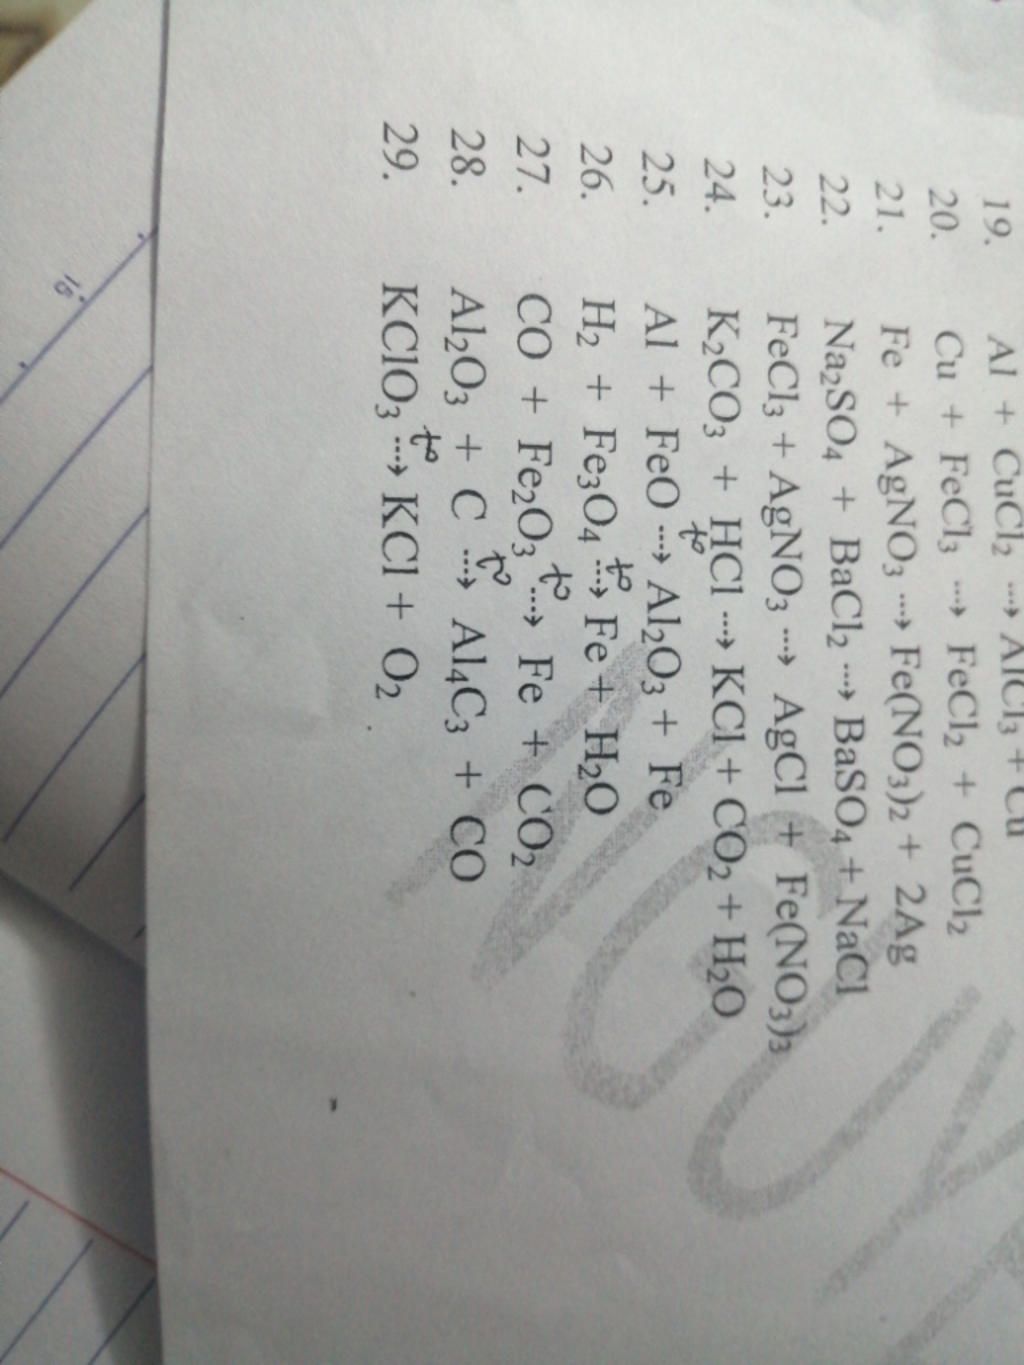 19. Al + CuCl₂ ⇢ AlCl₃ + Cu
20. Cu + FeCl₃ ⇢ FeCl₂ + CuCl₂
21. Fe + AgNO₃ ⇢ Fe(NO₃)₂ + 2Ag
22. Na₂SO₄ + BaCl₂ ⇢ BaSO₄ + NaCl
23. FeCl₃ + AgNO₃ ⇢ AgCl + Fe(NO₃)₃
24. K₂CO₃ + HCl ⇢ KCl + CO₂ + H₂O
25. Al + FeO ⇢ t° Al₂O₃ + Fe
26. H₂ + Fe₃O₄ ⇢ t° Fe + H₂O
27. CO + Fe₂O₃ ⇢ t° Fe + CO₂
28. Al₂O₃ + C ⇢ t° Al₄C₃ + CO
29. KClO₃ ⇢ t° KCl + O₂